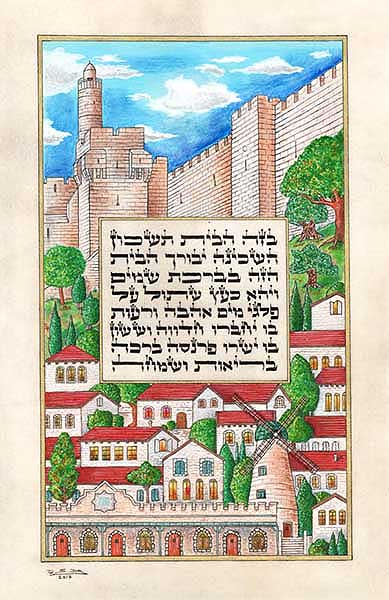 בזה הבית תשכון
השכינה יבורך הבית
הזה בברכת שמים
ויהא כעץ שתול על
פלגי מים אהבה ורעות
בו יחברו חדווה וששון
בו ישרו פרנסה ברכה
בריאות ושמחה